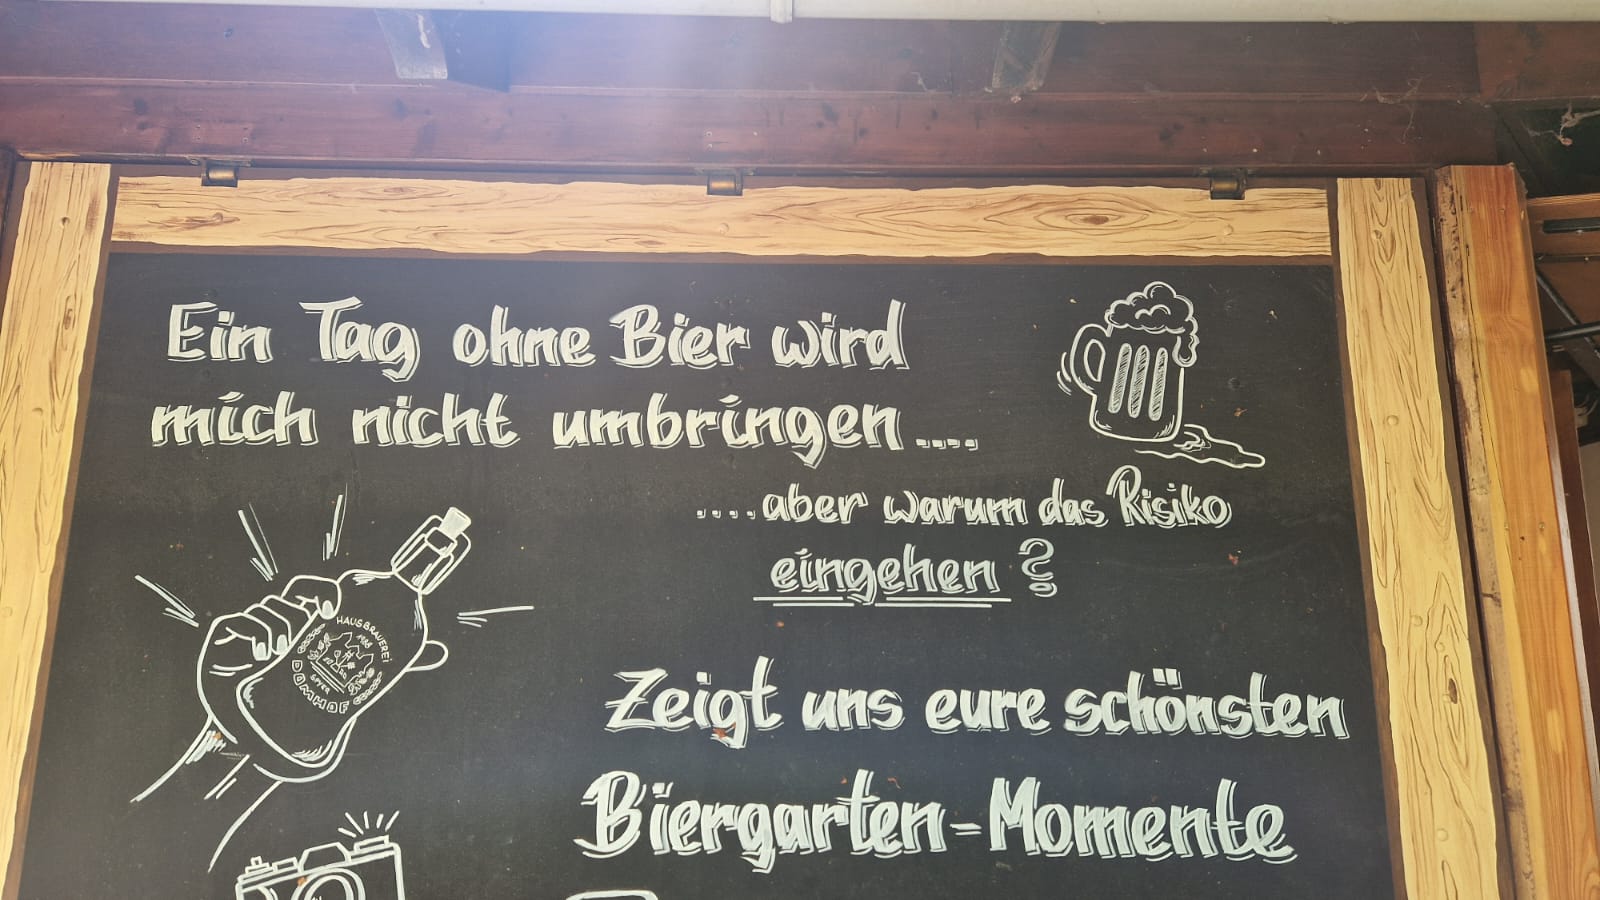 Ein Tag ohne Bier wird
mich nicht umbringen....
....aber warum das Risiko
eingehen?
HAUSBRAUEREI
1988
DOMHOF
Zeigt uns eure schönsten
Biergarten-Momente